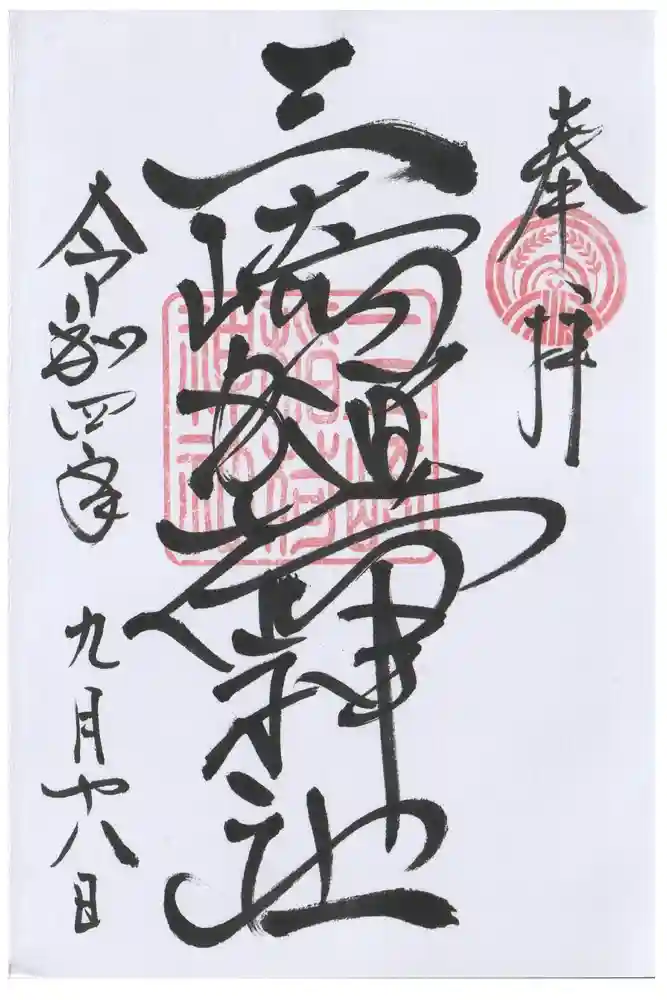 奉拝
三崎稲荷神社
令和四年 九月十八日